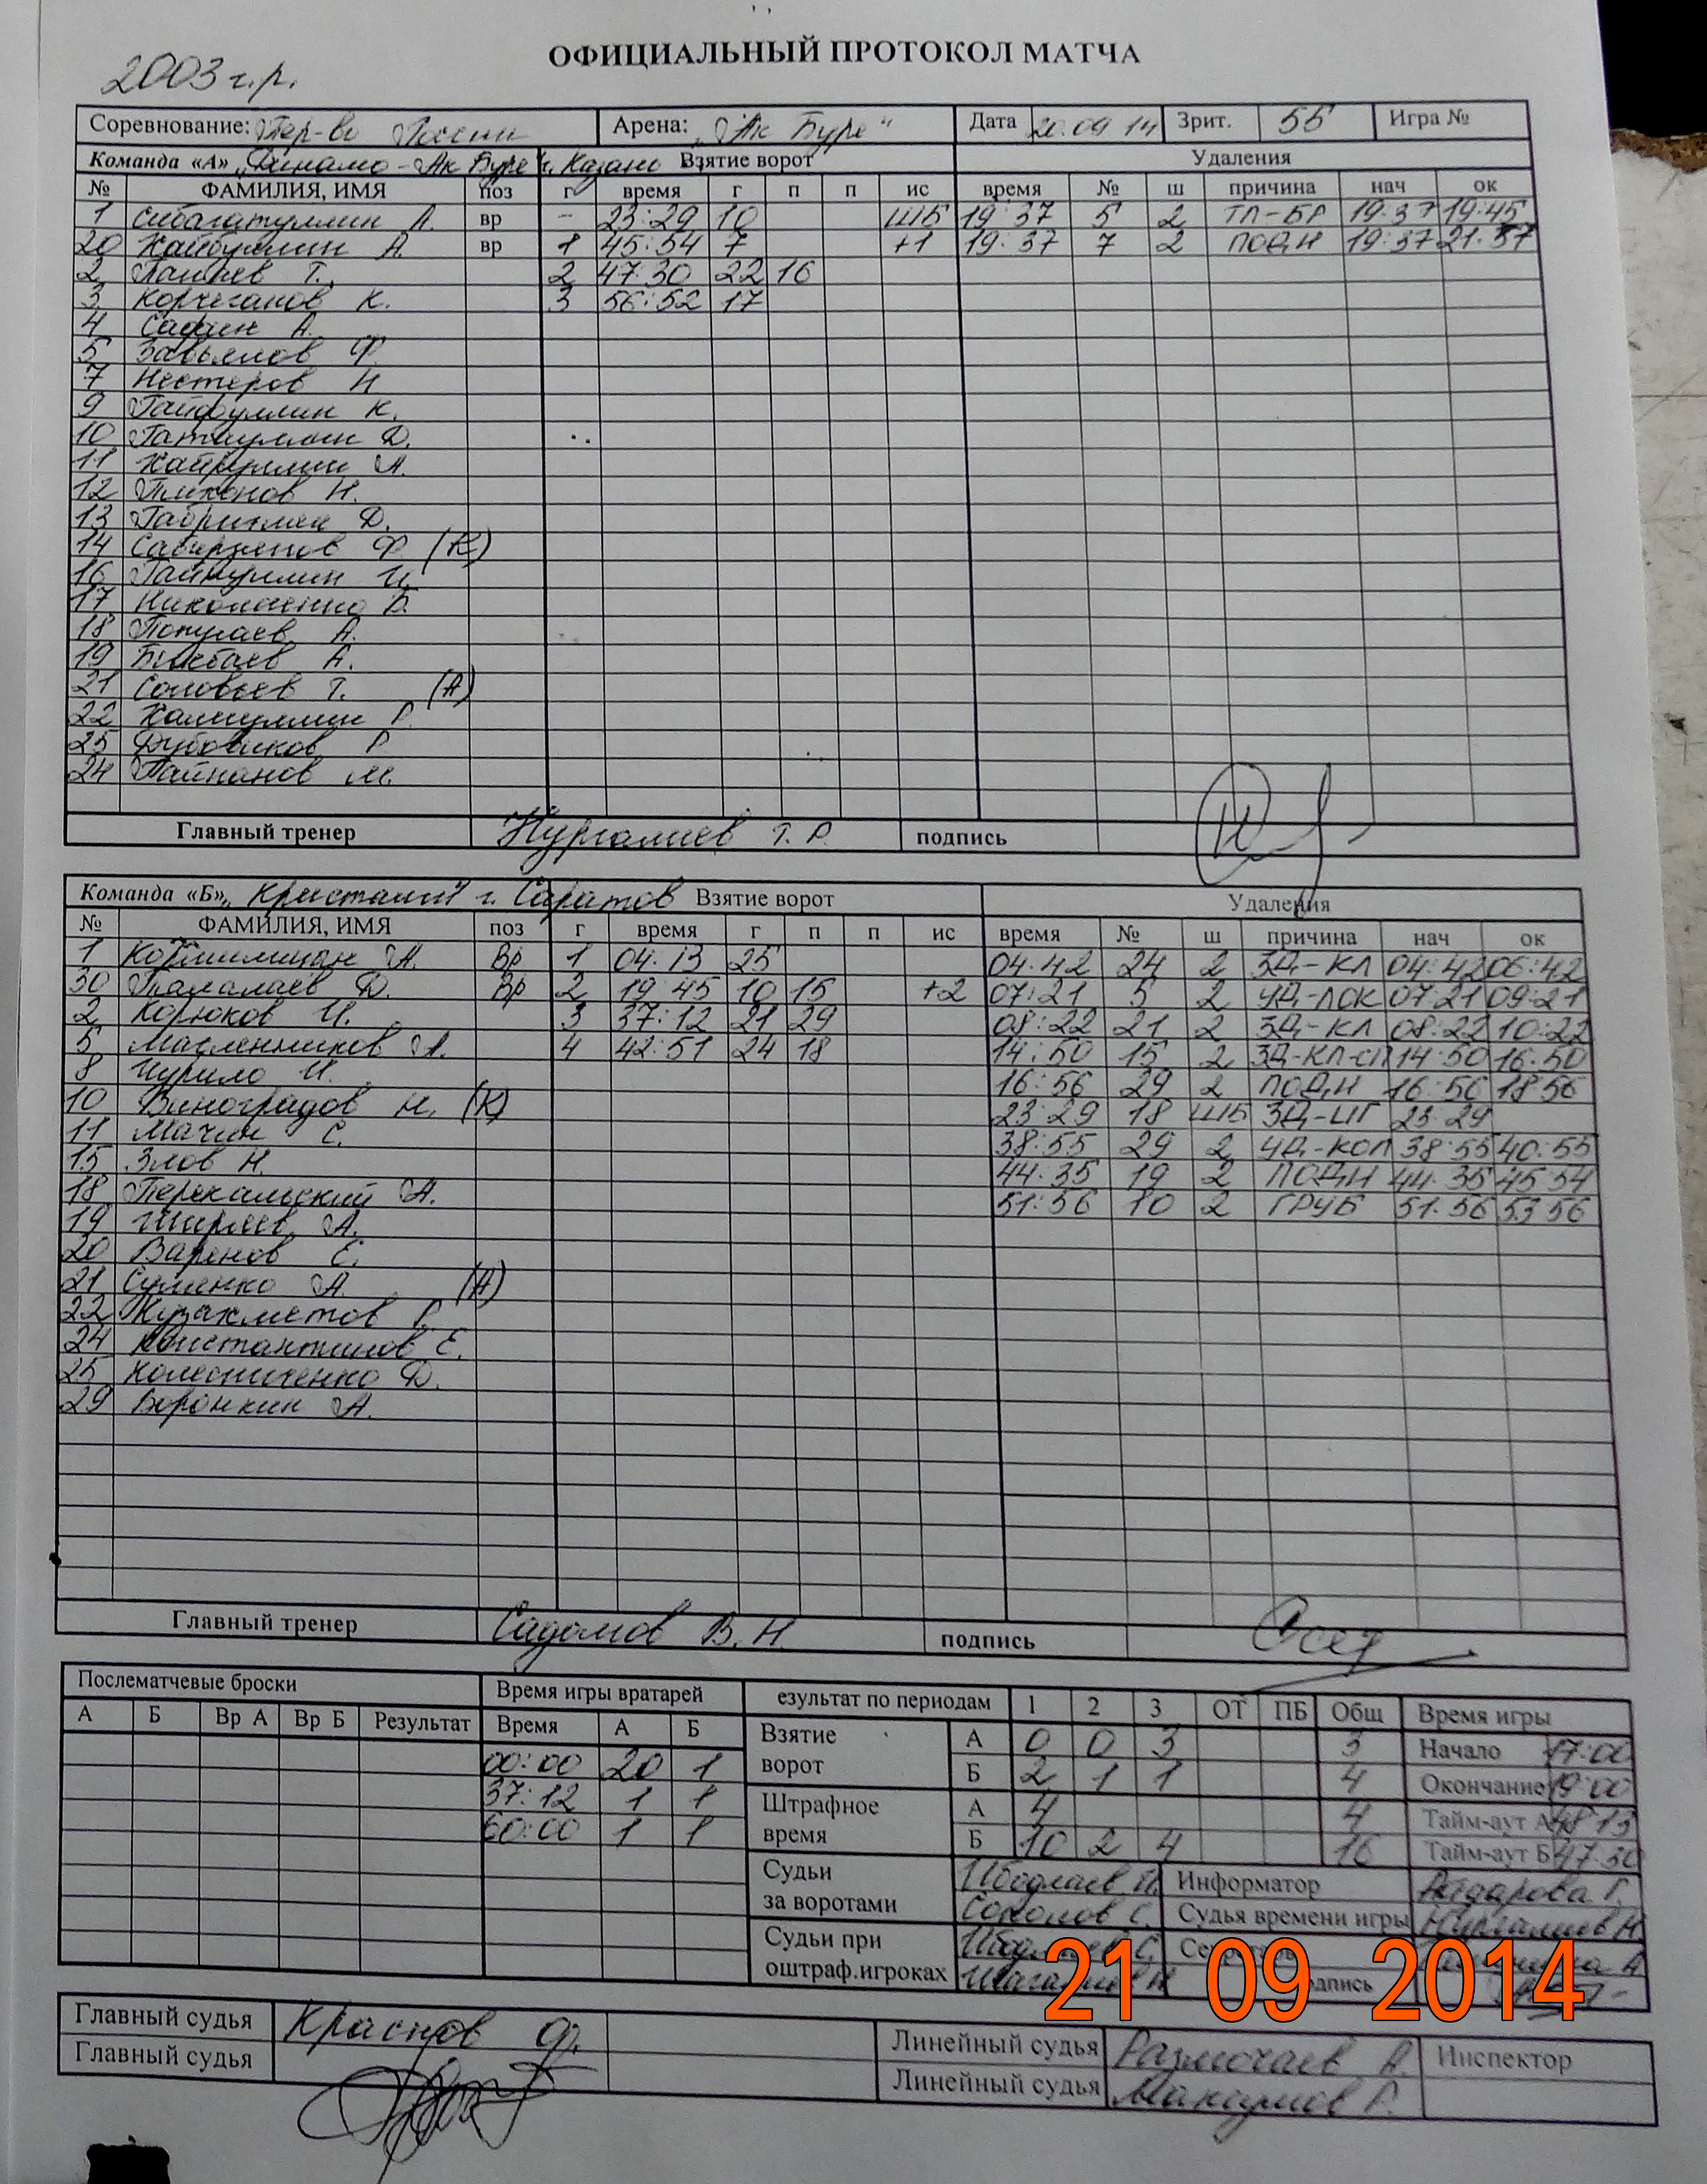 ОФИЦИАЛЬНЫЙ ПРОТОКОЛ МАТЧА
2003 г.р.
Соревнование: Пер-во России Арена: "Ак Буре" Дата 20.09 14 Зрит. 55 Игра №
Команда «А» "Динамо - Ак Буре" г. Казань Взятие ворот Удаления
№ ФАМИЛИЯ, ИМЯ поз г время г п п ис время № ш причина нач ок
1 Сибагатуллин А. вр - 23:29 10 ШБ 19:37 5 2 ТЛ-БР 19:37 19:45
20 Хайбуллин А. вр 1 45:54 7 +1 19:37 7 2 ПОДН 19:37 21:37
2 Т. 2 47:30 22 16
3 Корчеганов К. 3 56:52 17
4 Сафин А.
5 Завьялов Ф.
7 Нестеров Н
9 Гайфуллин К.
10 Гатауллин Д.
11 Хайруллин А.
12 Н.
13 Д.
14 Сабирзянов Ф (К)
16 Гайнуллин И.
17 Николаенко Б.
18 Попугаев А.
19 Бикбаев А.
21 Соловьев Т. (А)
22 Халиуллин Р.
25 Дубовиков Р
24 Тайпанов М.
Главный тренер Нургалиев Т. Р. подпись
Команда «Б» "Кристалл" г. Саратов Взятие ворот Удаления
№ ФАМИЛИЯ, ИМЯ поз г время г п п ис время № ш причина нач ок
1 А. Вр 1 04:13 25 04:42 24 2 ЗД-КЛ 04:42 06:42
30 Д. Вр 2 19:45 10 15 +2 07:21 5 2 УД-ЛОК 07:21 09:21
2 Корюков И. 3 37:12 21 29 08:22 21 2 ЗД-КЛ 08:22 10:22
5 Масленников А. 4 42:51 24 18 14:50 15 2 ЗД-КЛ-СП 14:50 16:50
8 Чурило И. 16:56 29 2 ПОДН 16:56 18:56
10 Виноградов М. (К) 23:29 18 ШБ ЗД-ЦГ 23:29
11 Мачин С. 38:55 29 2 УД-КОЛ 38:55 40:55
15 Злов Н. 44:35 19 2 ПОДН 44:35 45 54
18 Перекальский А. 51:56 10 2 ГРУБ 51:56 53 56
19 Ширяев А.
20 Варенов Е.
21 Суленко А. (А)
22 Кузахметов Р.
24 Константинов Е.
25 Колесниченко Д.
29 Воронкин А.
Главный тренер Садомов В. Н. подпись
Послематчевые броски Время игры вратарей езультат по периодам 1 2 3 ОТ ПБ Общ Время игры
А Б Вр А Вр Б Результат Время А Б Взятие ворот А 0 0 3 3 Начало 17:00
00:00 20 1 Б 2 1 1 4 Окончание 19:00
37:12 1 1 Штрафное время А 4 4 Тайм-аут А 48 13
60:00 1 1 Б 10 2 4 16 Тайм-аут Б 47 30
Судьи за воротами Информатор Айдарова Г.
Соколов С. Судья времени игры Нургалиев Н.
Судьи при оштраф.игроках
21 09 2014
Главный судья Краснов Ф. Линейный судья Размочаев А. Инспектор
Главный судья Линейный судья Макаров Р.